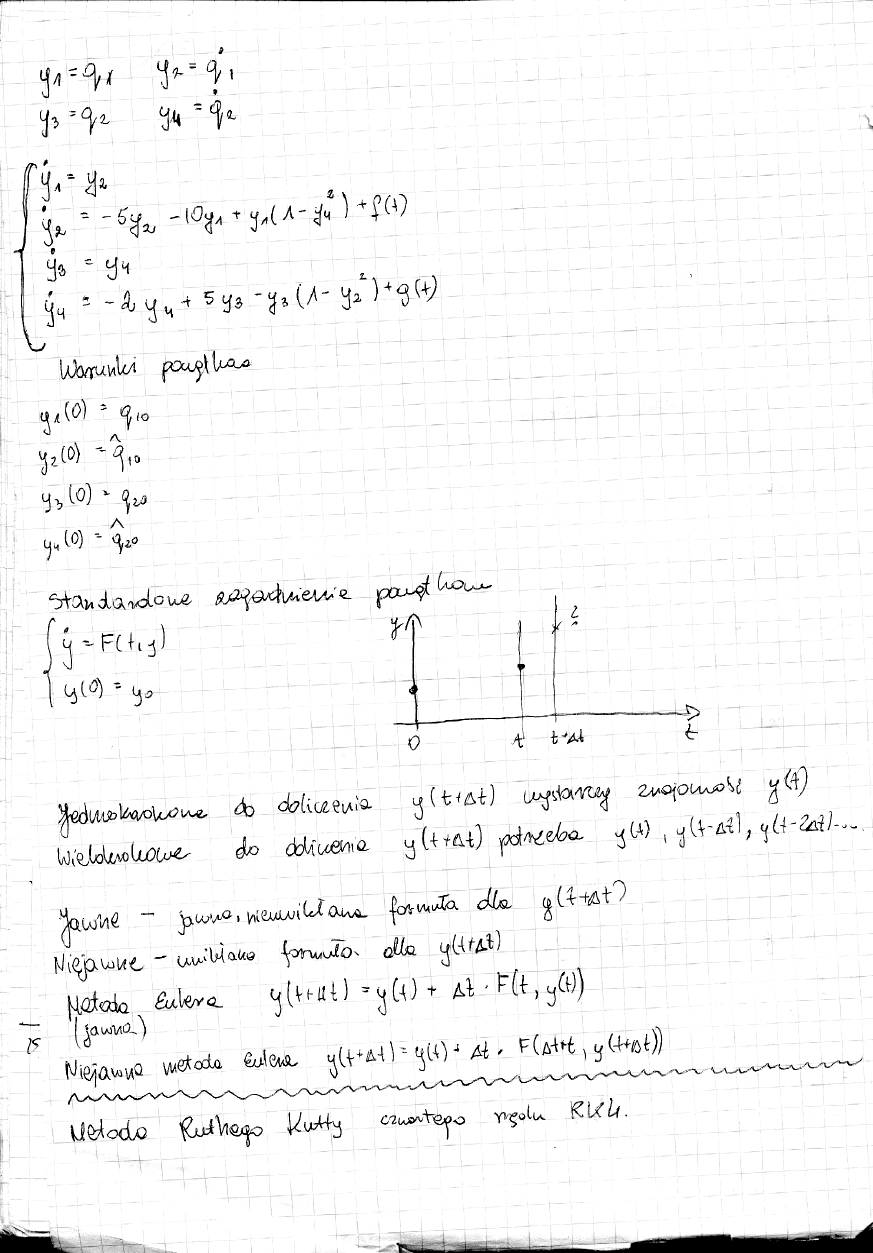 y₁ = q₁ y₂ = q̇₁
y₃ = q₂ y₄ = q̇₂
ẏ₁ = y₂
ẏ₂ = -5y₂ -10y₁ + y₁(1 - y₄²) + f(t)
ẏ₃ = y₄
ẏ₄ = -2y₄ + 5y₃ - y₃(1 - y₂²) + g(t)
Warunki początkowe
y₁(0) = q₁₀
y₂(0) = q̂₁₀
y₃(0) = q₂₀
y₄(0) = q̂₂₀
Standardowe zagadnienie początkowe
ẏ = F(t, y)
y(0) = y₀
y ?
0 t t+Δt t
Jednokrokowe do obliczenia y(t+Δt) wystarczy znajomość y(t)
Wielokrokowe do obliczenia y(t+Δt) potrzeba y(t), y(t-Δt), y(t-2Δt)...
Jawne - jawna, nieuwikłana formuła dla y(t+Δt)
Niejawne - uwikłana formuła dla y(t+Δt)
Metoda Eulera y(t+Δt) = y(t) + Δt · F(t, y(t))
(jawna)
Niejawna metoda Eulera y(t+Δt) = y(t) + Δt · F(Δt+t, y(t+Δt))
Metoda Ruthego Kutty czwartego rzędu RK4.